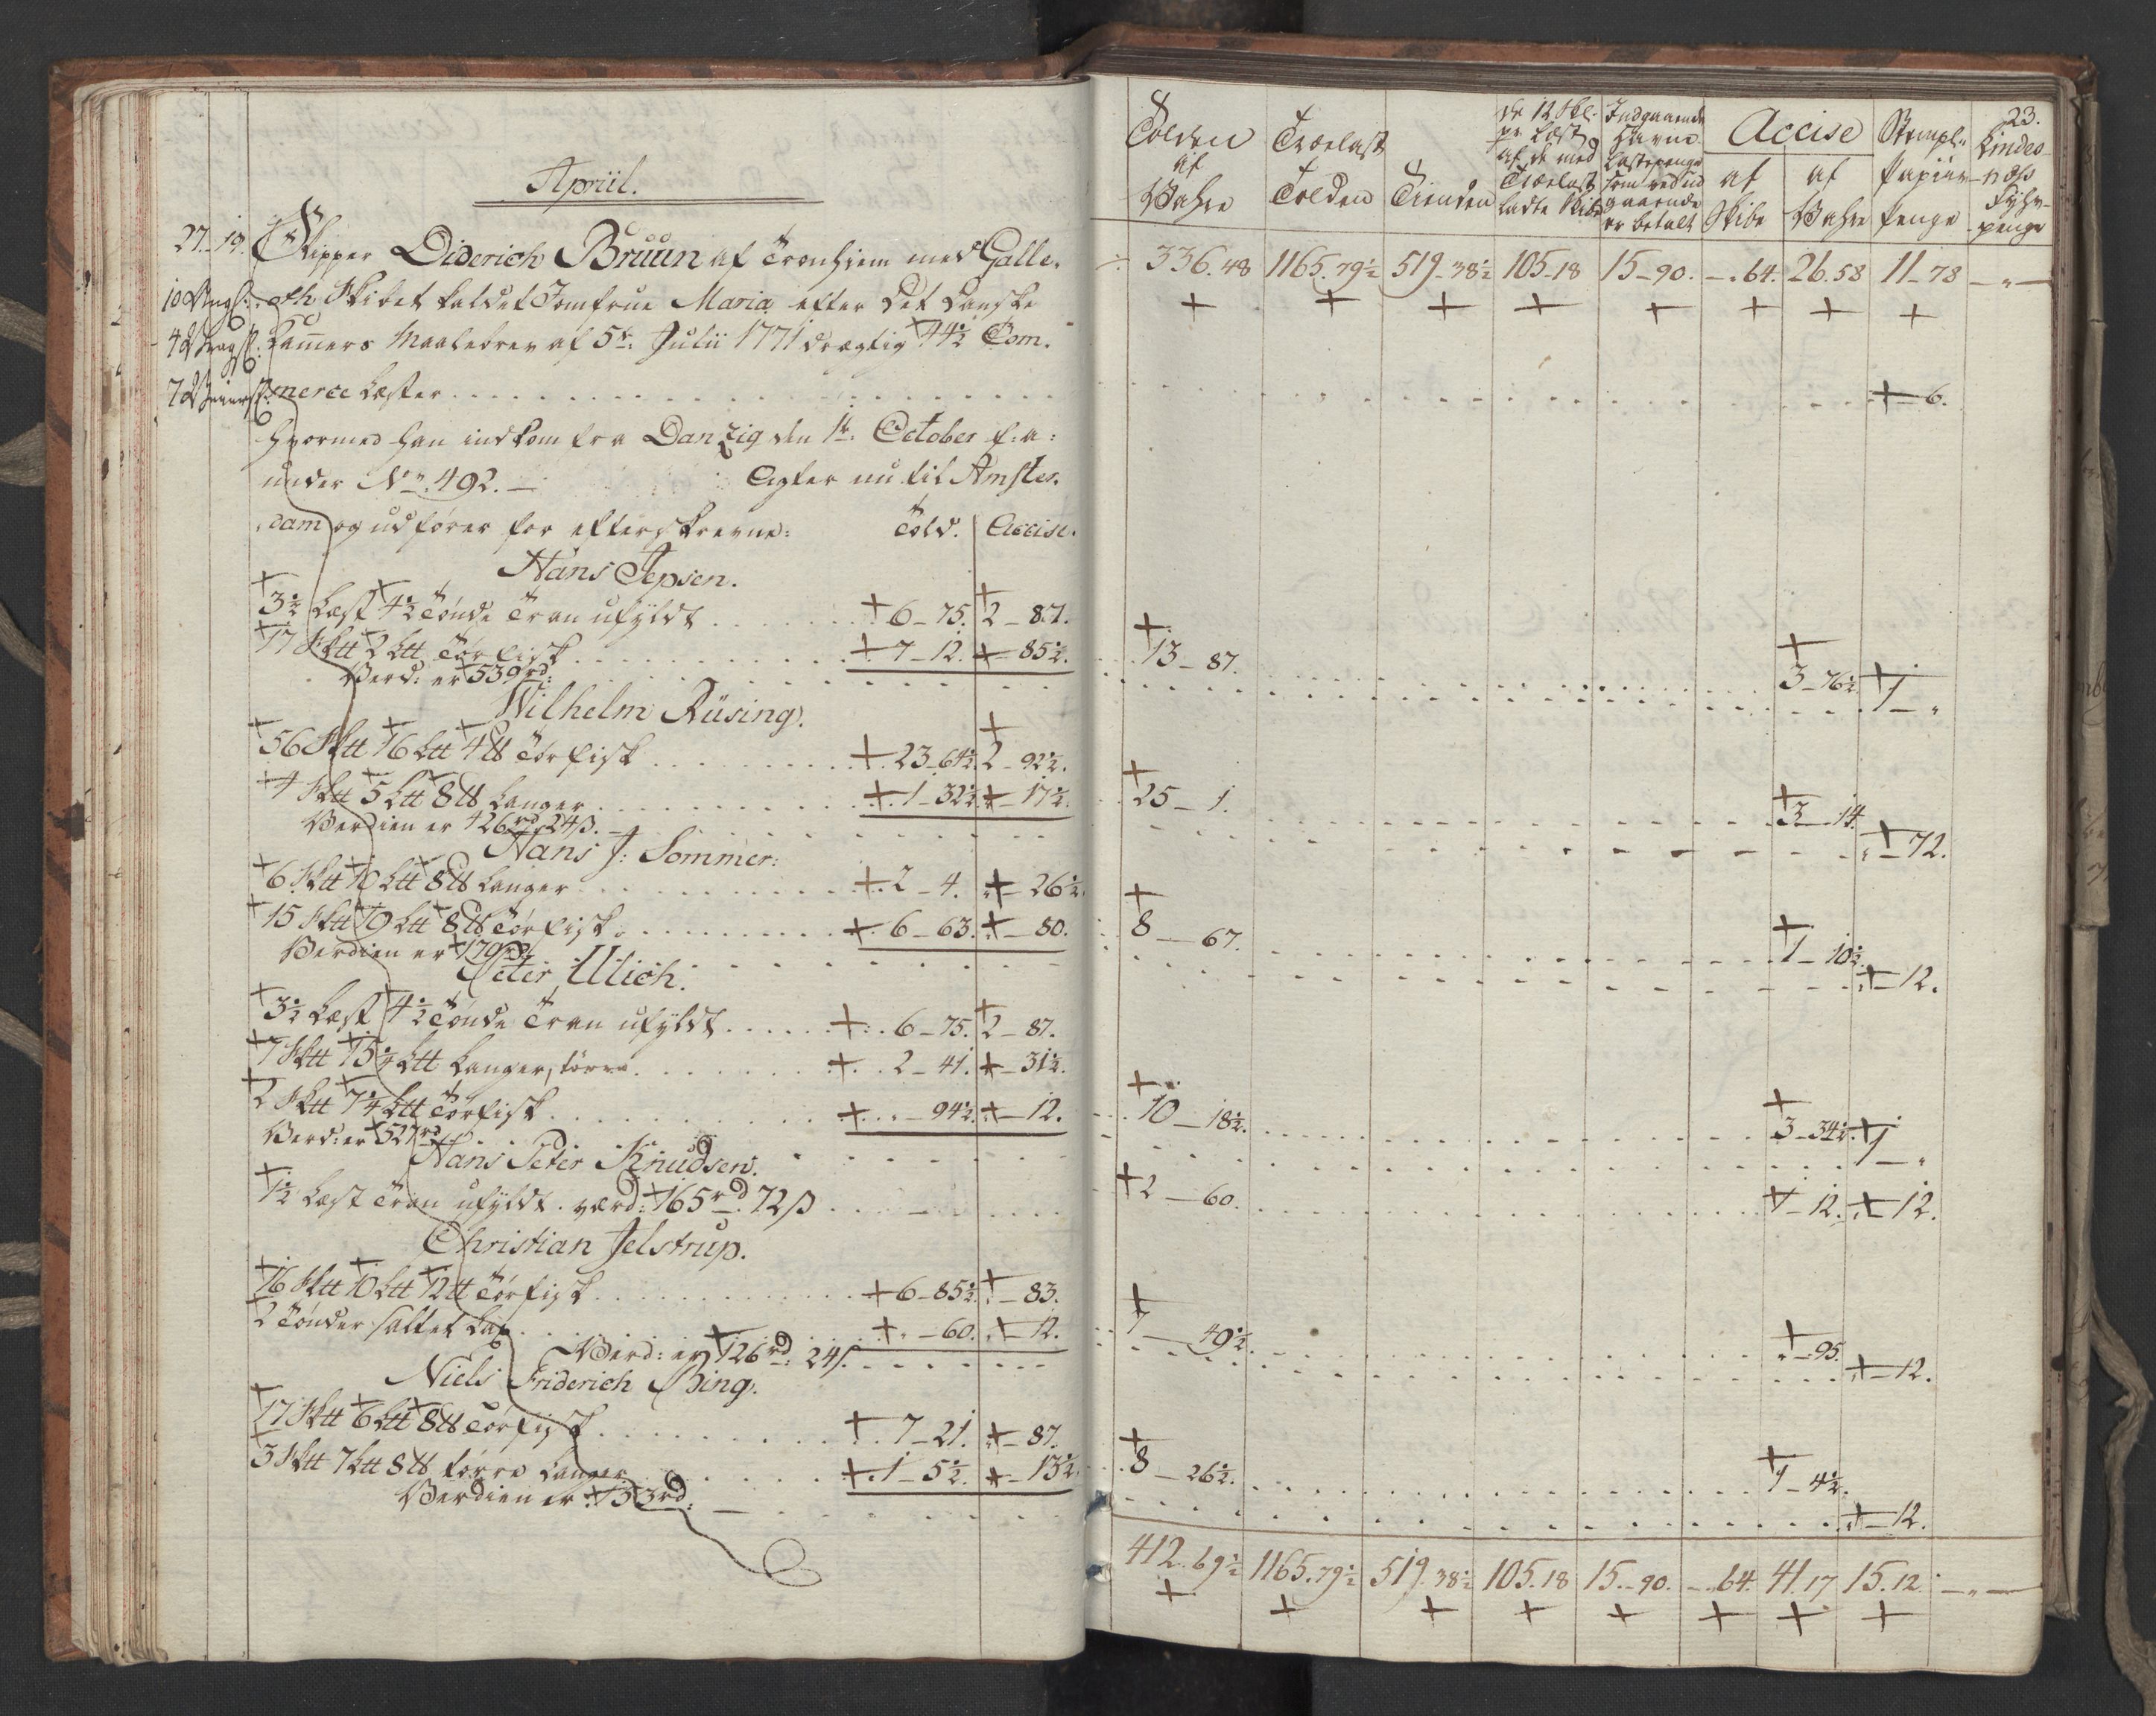 Apriil.
27. 19. Skipper Diderich Bruun af Tronhiem med Galle-
oth Skibet kaldet Jomfrue Maria efter det danske
Kammers Maalebrev af 5te Julii 1771 drægtig 44½ Com-
merce Læster
hvormed han indkom fra Danzig den 1te October f: a:
under No 492. — Agter nu til Amster-
dam og udfører for efterskrevne: Told. Accise.
Hans Jepsen.
3½ Læst 4½ Tønde Tran ufyldt 6 – 75. 2 – 87.
17 Sktt 2 Ltt Tørfisk 7 – 12. – 85½.
Verd: er 539 rd:
Wilhelm Rüsing.
56 Sktt 16 Ltt 4 tt Tørfisk 23 – 64½. 2 – 92½.
4 Sktt 5 Ltt 8 tt Langer 1 – 32½ – 17½.
Verdien er 426 rd 24 β. –
Hans J: Sommer:
6 Sktt 10 Ltt 8 tt Langer 2 – 4. – 26½.
15 Sktt 19 Ltt 8 tt Tørfisk 6 – 63. – 80.
Verdien er 179 rd
Peter Ulich.
3½ Læst 4½ Tønde Tran ufyldt 6 – 75. 2 – 87.
7 Sktt 15¼ Ltt Langer, tørre 2 – 41. – 31½.
2 Sktt 7¼ Ltt Tørfisk „ – 94½. – 12.
Verd: er 527 rd
Hans Peter Knudsen.
1½ Læst Tran ufyldt. værd: 165 rd. 72 β
Christian Jelstrup.
16 Sktt 10 Ltt 12 tt Tørfisk 6 – 85½. – 83.
2 Tønder saltet Lax „ – 60. – 12.
Verd: er 126 rd: 24 β.
Niels Friderich Bing.
17 Sktt 6 Ltt 8 tt Tørfisk 7 – 21. – 87.
3 Sktt 7 Ltt 8 tt tørre Langer 1 – 5½. – 13½.
Verdien er 153 rd: —
23.
Tolden af Vahre
Træelast Tolden
Tienden
de 12 Skl. pr Læst af de med Træelast ladte Skibe
Indgaaende Havne Lastepenge som ved ud gaaende er betalt
Accise
af Skibe
af Vahre
Stempl. Papiir Penge
Lindes-næss Fyhr-penge
336. 48 1165. 79½ 519. 38½ 105 – 18 15 – 90. – „ 64. 26. 58 11 – 78 — „ —
– 6.
13 – 87. 3 – 76½. 1 – „
25 – 1. 3 – 14. „ – 72.
8 – 67. 1 – 10½. „ – 12.
10 – 18½. 3 – 34½. 1 – „
2 – 60. 1 – 12. – 12.
7 – 49½. „ – 95. „ – 12.
8 – 26½. 1 – 4½. „ – 12.
412. 69½ 1165. 79½ 519. 38½ 105. 18 15 – 90. – „ 64. 41. 17 15. 12. — „ —